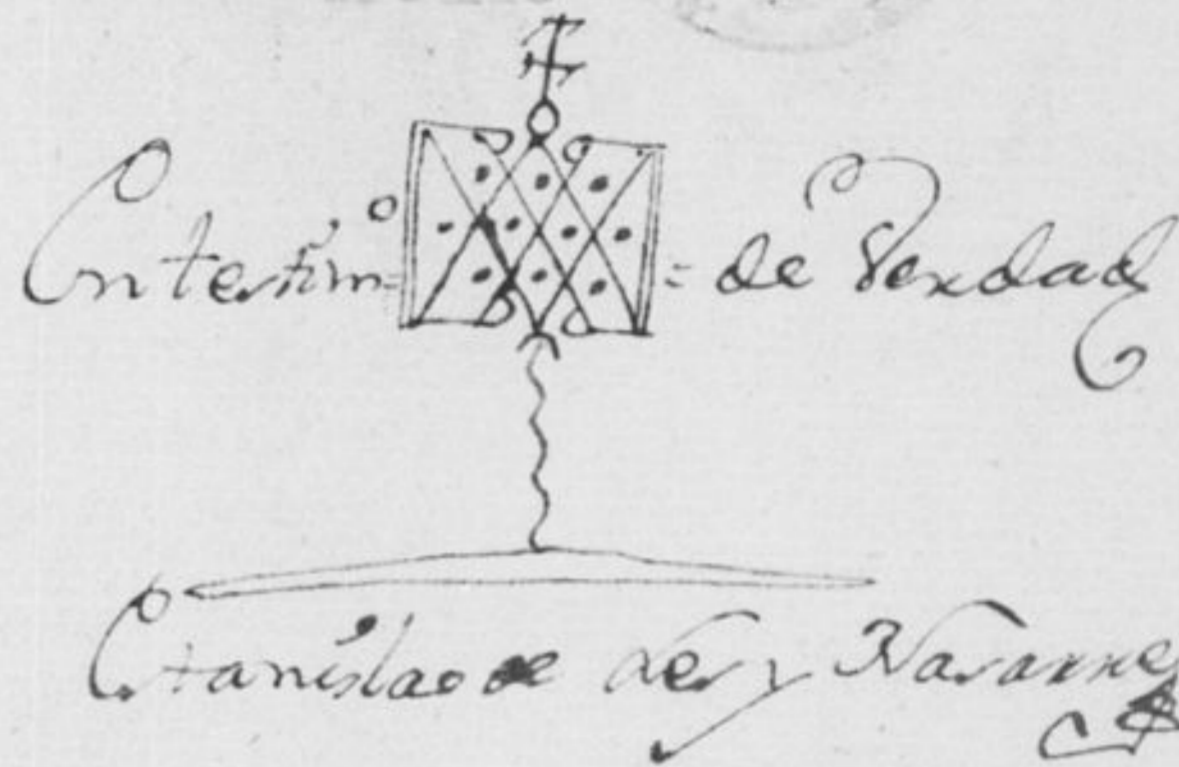 En testim.º = de Verdad
Estanislao de Ler y Navarre